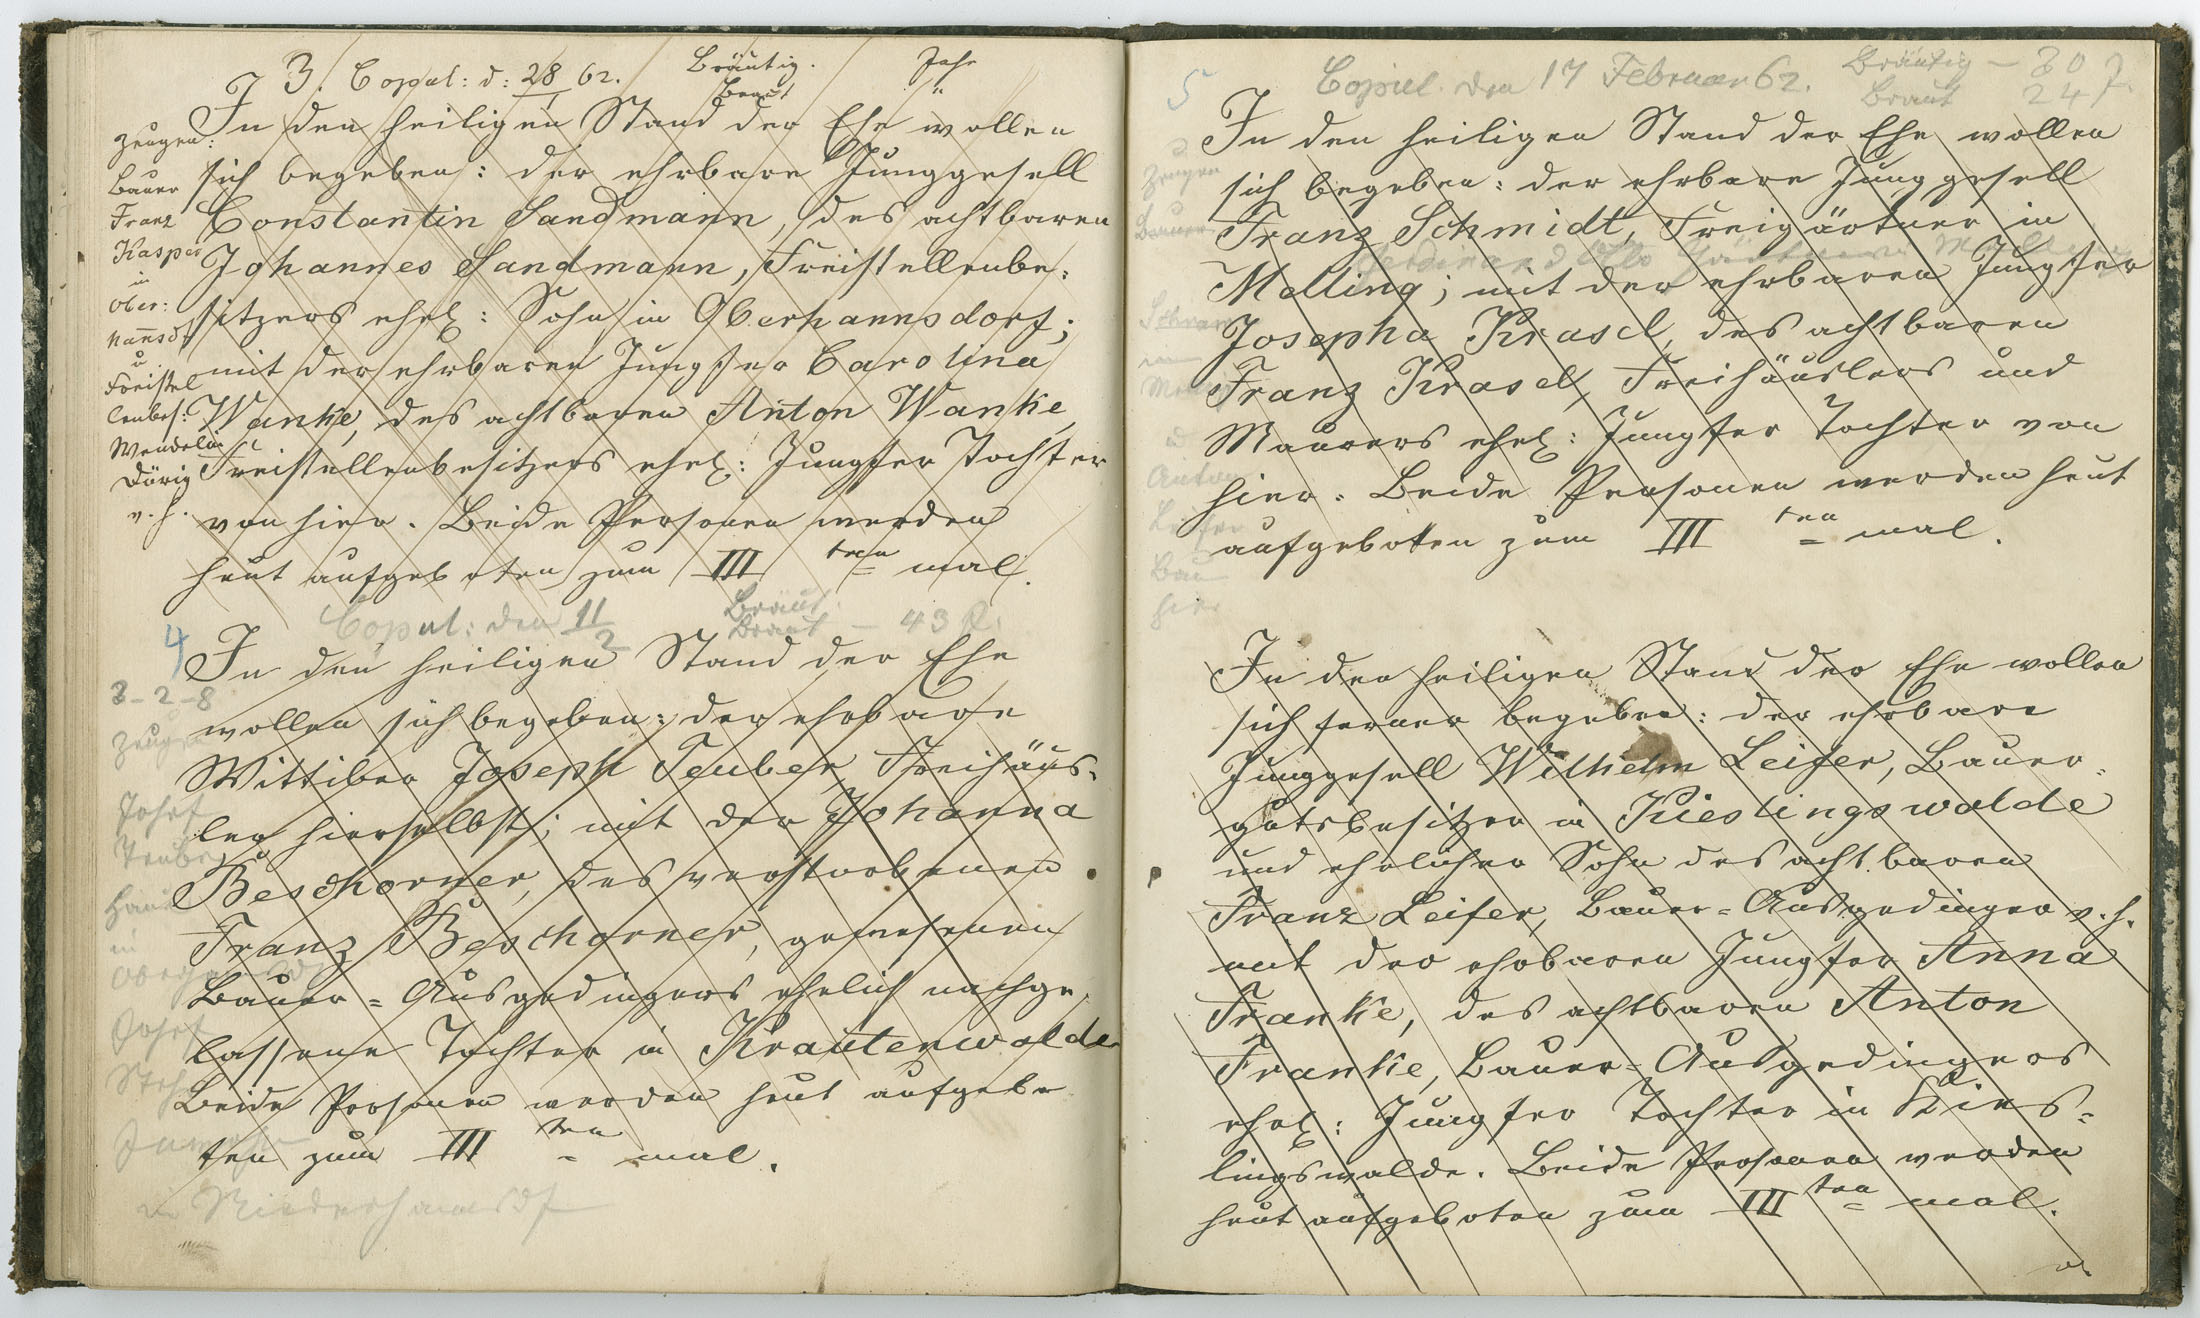 3. Copul: d: 28/1 62. Bräutig. Jahr
Braut "
In den heiligen Stand der Ehe wollen
sich begeben: der ehrbare Junggesell
Constantin Sandmann, des achtbaren
Johannes Sandmann, Freistellenbe-
sitzers ehel: Sohn in Oberhannsdorf;
mit der ehrbaren Jungfer Carolina
Wanke, des achtbaren Anton Wanke,
Freistellenbesitzers ehel: Jungfer Tochter
von hier. Beide Personen werden
heut aufgeboten zum III ten mal.
Zeugen:
Bauer
Franz
Kasper
in
Ober:
hannsdf
u.
Freistel
lenbes:
Wendelin
Dörig
v. h.
4 Copul: den 11/2 Bräut.
Braut – 43 J.
In den heiligen Stand der Ehe
wollen sich begeben: der ehrbare
Wittiber Joseph Teuber, Freihäus-
ler hierselbst; mit der Johanna
Beschorner, des verstorbenen
Franz Beschorner, gewesenen
Bauer-Ausgedingers ehelich nachge-
lassene Tochter in Krautenwalde
Beide Personen werden heut aufgebo
ten zum III ten mal.
3-2-8
Zeugen
Josef
Teuber
in
Josef
in Niederhannsdf
5 Copul. den 17 Februar 62. Bräutig – 30 J.
Braut 24 J.
In den heiligen Stand der Ehe wollen
sich begeben: der ehrbare Junggesell
Franz Schmidt, Freigärtner in
Melling; mit der ehrbaren Jungfer
Josepha Krasel, des achtbaren
Franz Krasel, Freihäuslers und
Maurers ehel: Jungfer Tochter von
hier. Beide Personen werden heut
aufgeboten zum III ten mal.
Zeugen
Bauer
in
Anton
hier
In den heiligen Stand der Ehe wollen
sich ferner begeben: der ehrbare
Junggesell Wilhelm Leifer, Bauer-
gutsbesitzer in Kieslingswalde
und ehelicher Sohn des achtbaren
Franz Leifer, Bauer-Ausgedinger v. h.
mit der ehrbaren Jungfer Anna
Franke, des achtbaren Anton
Franke, Bauer-Ausgedingers
ehel: Jungfer Tochter in Kies-
lingswalde. Beide Personen werden
heut aufgeboten zum III ten mal.